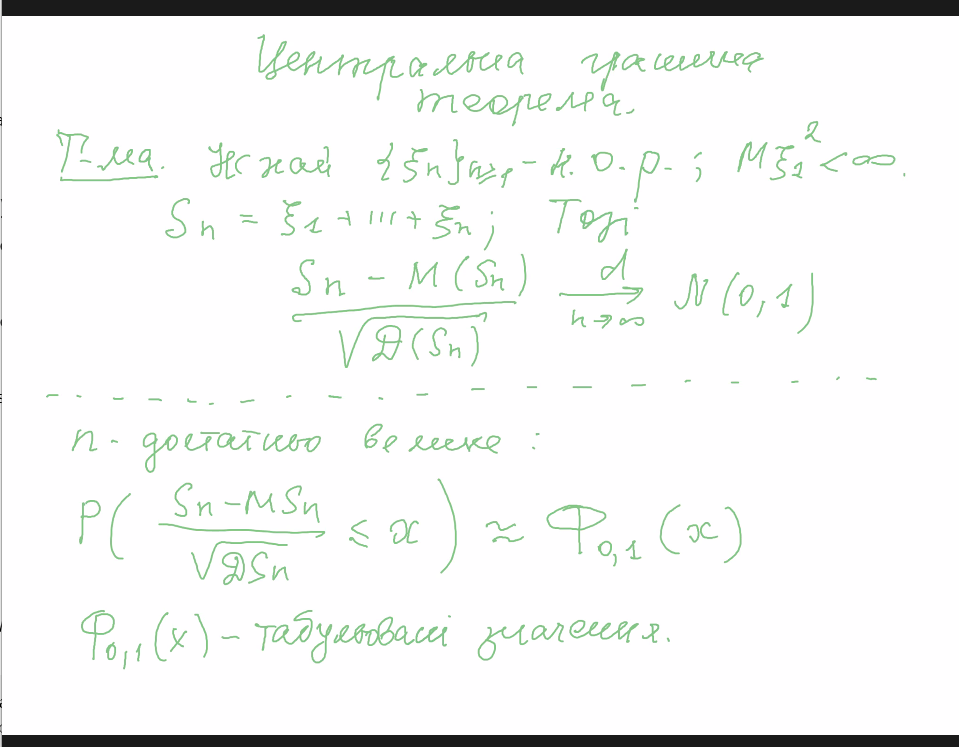 Центральна гранична
теорема.
Т-ма. Нехай {ξn}n≥1 - н. о. р. ; Mξ1² < ∞.
Sn = ξ1 + ... + ξn; Тоді
(Sn - M(Sn)) / √D(Sn) d→ n→∞ N(0,1)
n - достатньо велике :
P( (Sn - MSn) / √DSn ≤ x ) ≈ Φ0,1 (x)
Φ0,1(x) - табульовані значення.